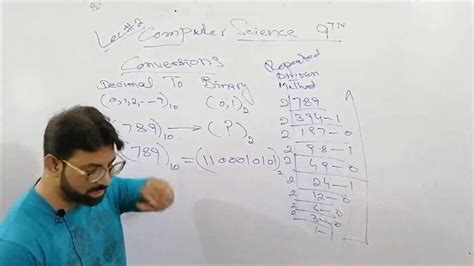 Lec#:2 Computer Science 9TH
Conversions
Decimal To Binary
(0,1,2,--9)10 (0,1)2
(789)10 → (?)2
(789)10 = (1100010101)2
Repeated
Division
Method
2 789
2 394-1
2 197-0
2 98-1
2 49-0
2 24-1
2 12-0
2 6-0
2 3-0
1-1